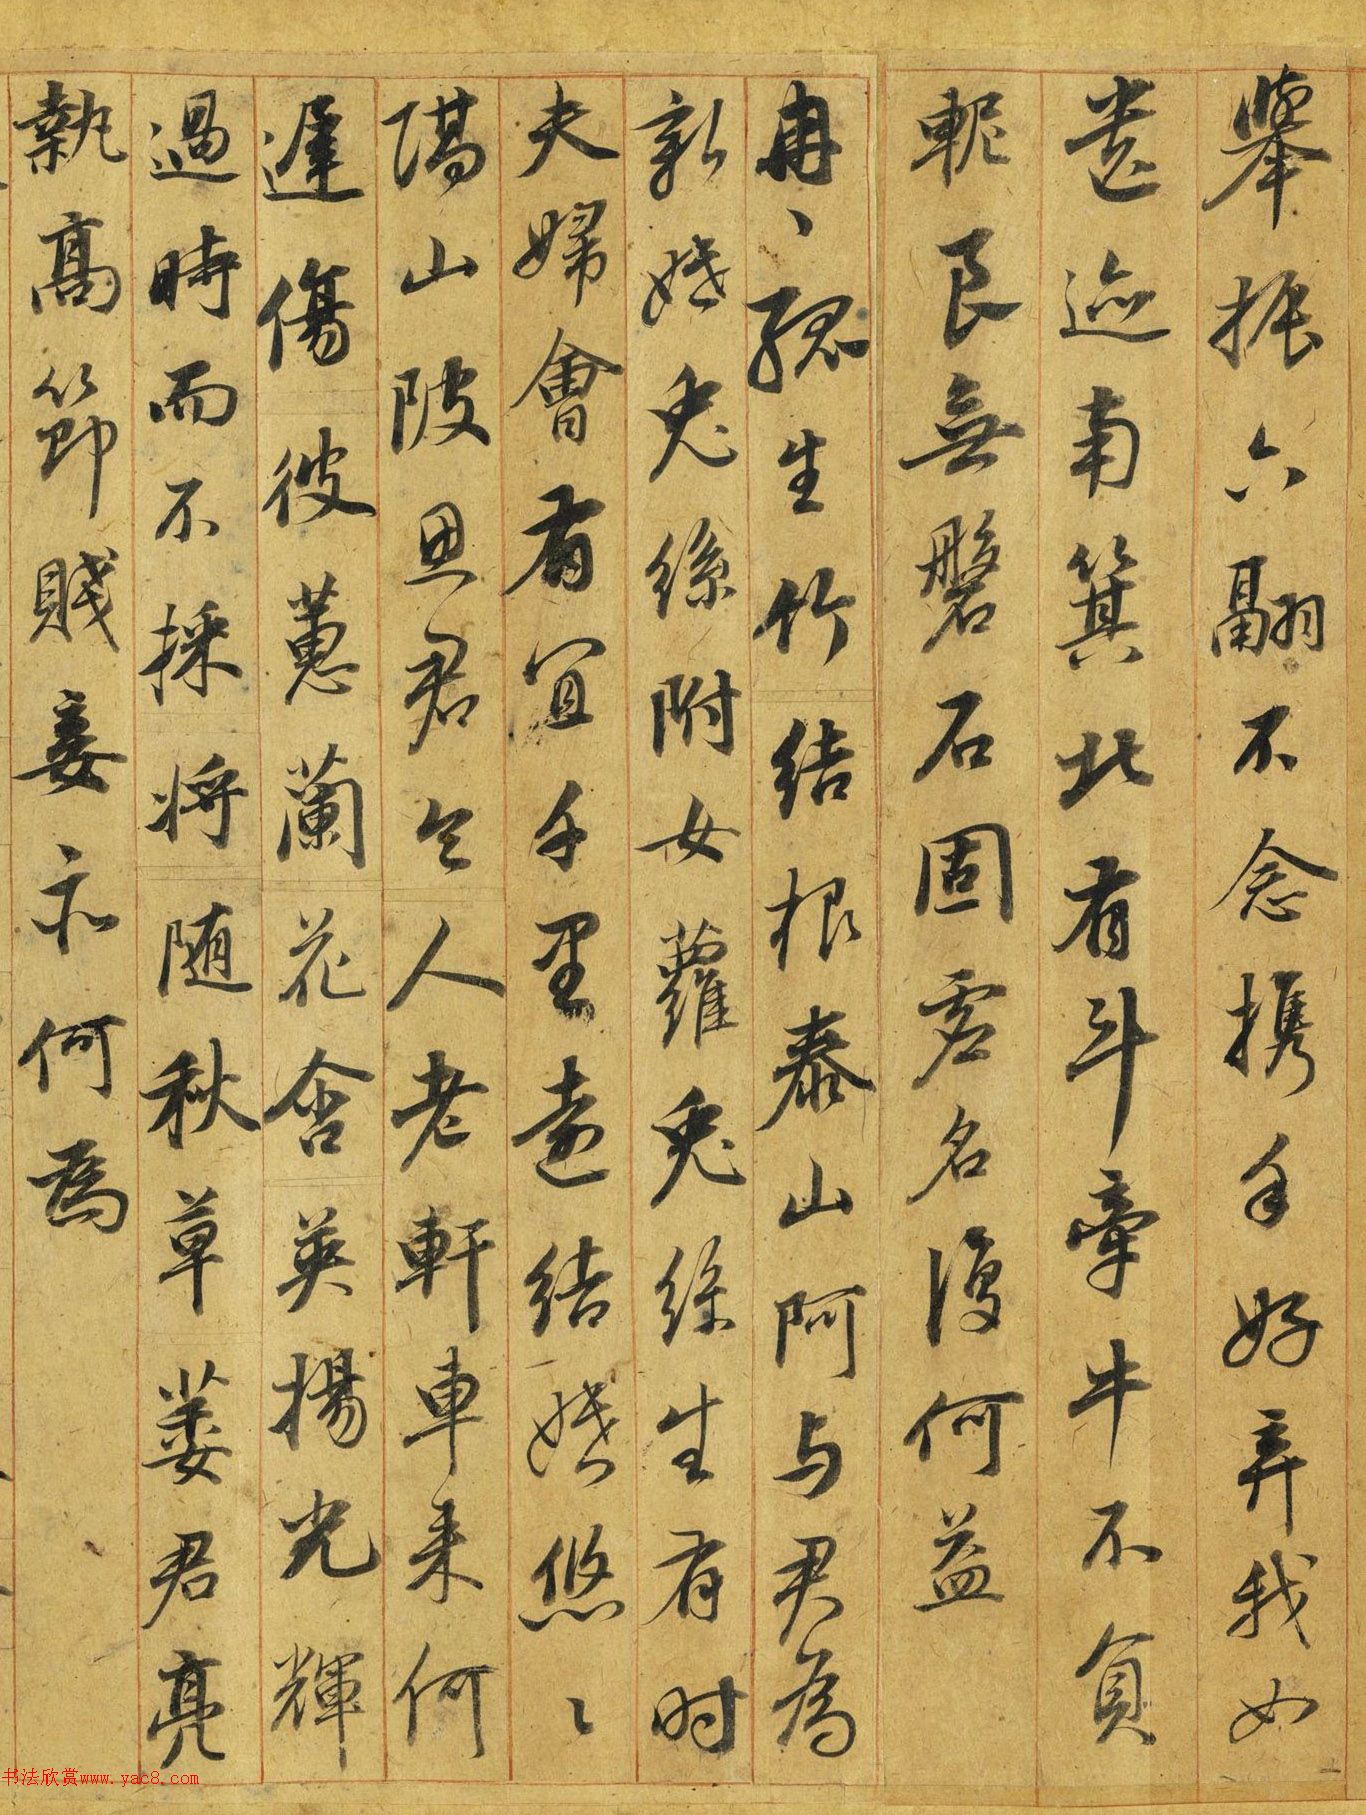 舉振六翮不念攜手好弃我如
遺迹南箕北有斗牽牛不負
軛良無磐石固虚名復何益
冉〻孤生竹結根泰山阿与君為
新婚兎絲附女蘿兎絲生有时
夫婦會有宜千里遠結婚悠〻
隔山陂思君令人老軒車来何
遲傷彼蕙蘭花含英揚光輝
過時而不採将随秋草萎君亮
執高節賤妾亦何為
书法欣赏www.yac8.com